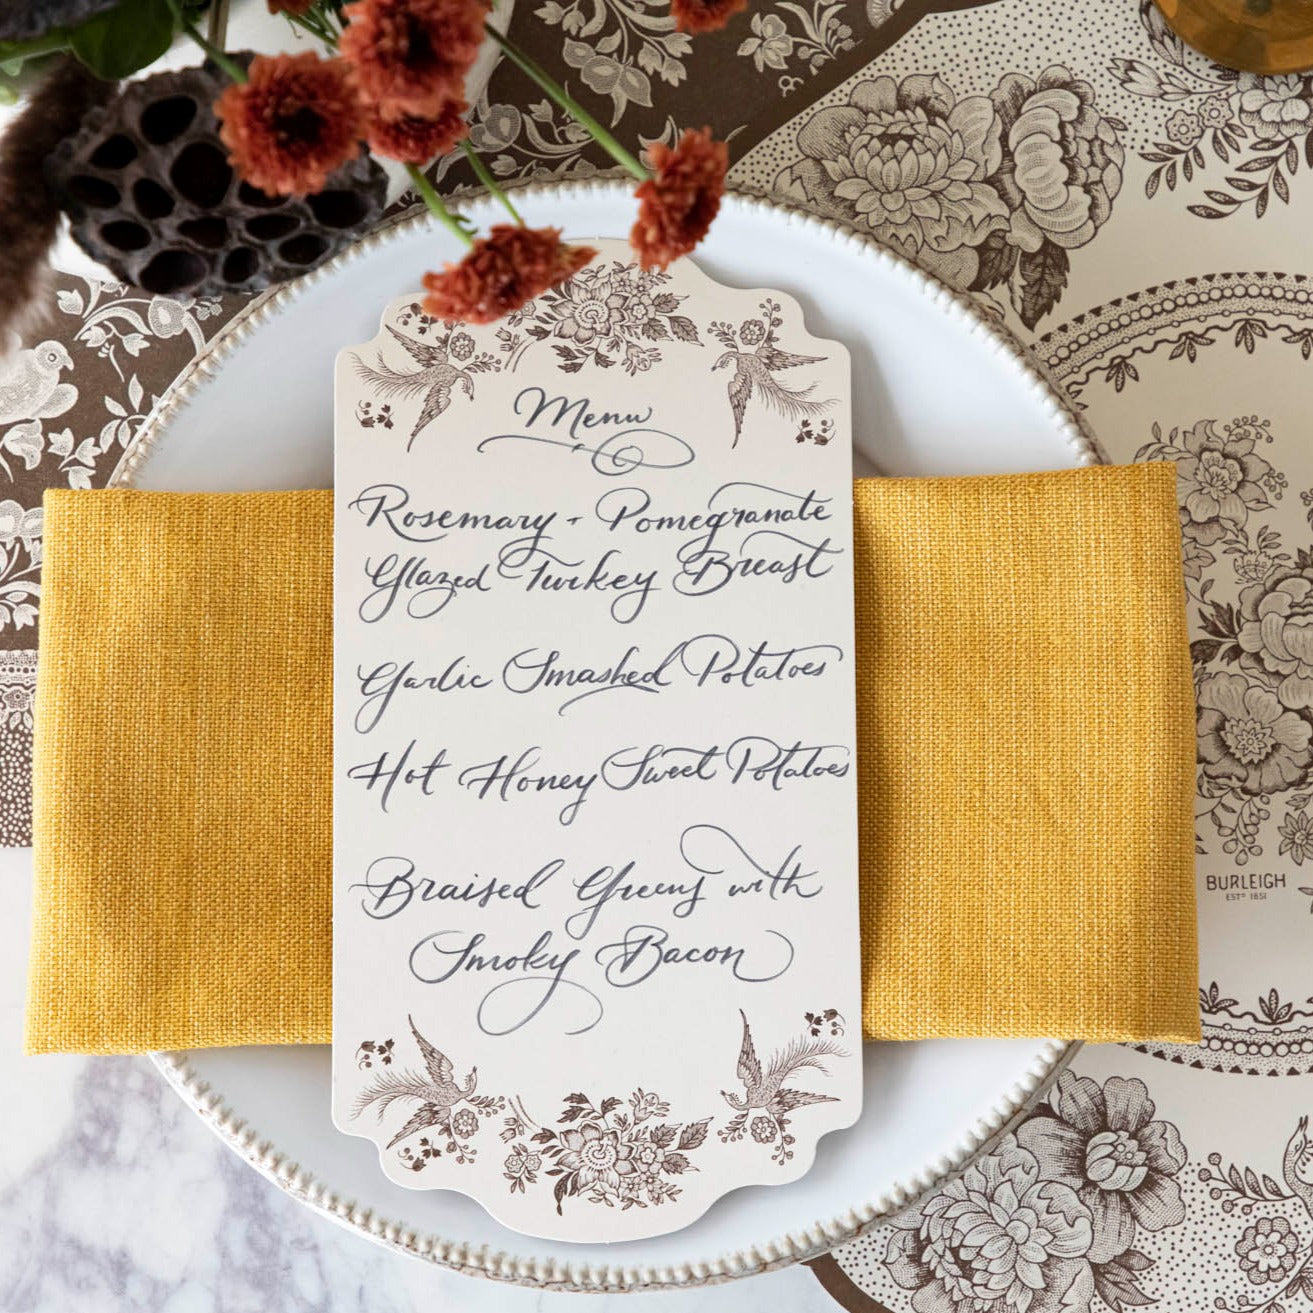 Menu
Rosemary - Pomegranate
Glazed Turkey Breast
Garlic Smashed Potatoes
Hot Honey Sweet Potatoes
Braised Greens with
Smoky Bacon
BURLEIGH
ESTD 1851